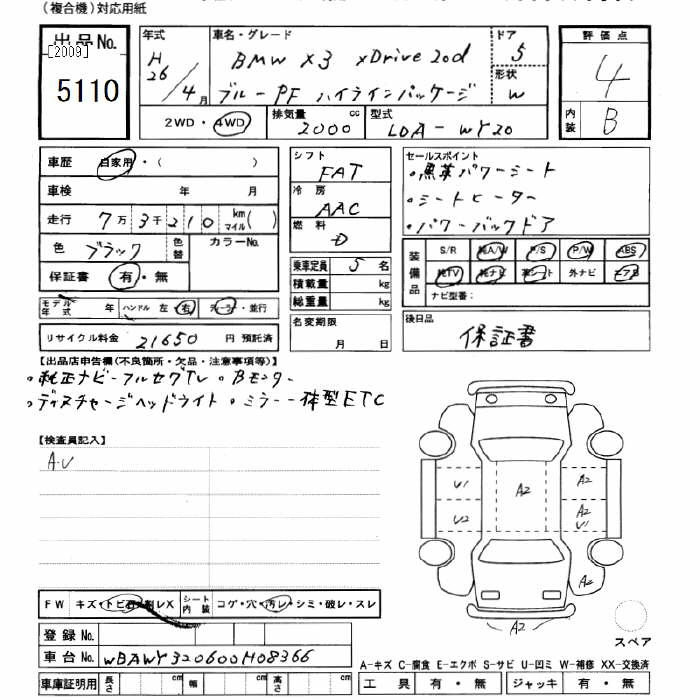 (複合機)対応用紙
出品No.
[2009]
5110
年式
H26/4月
車名・グレード
BMW X3 xDrive 20d
ブルーPF ハイラインパッケージ
ドア
5
形状
W
評価点
4
内装
B
2WD・4WD
排気量
2000cc
型式
LDA-WY20
車歴 自家用・( )
車検 年 月
走行 7万3千210 km マイル( )
色 ブラック 色替 カラーNo.
保証書 有・無
モデル年式 年 ハンドル 左・右 ディーラー・並行
リサイクル料金 21650 円 預託済
シフト
FAT
冷房
AAC
燃料
D
乗車定員 5名
積載量 kg
総重量 kg
名変期限
月 日
セールスポイント
・黒革パワーシート
・シートヒーター
・パワーバックドア
装備品
S/R 純A/W P/S P/W ABS
純TV 純ナビ 革シート 外ナビ エアB
ナビ型番:
後日品
保証書
【出品店申告欄(不良箇所・欠品・注意事項等)】
・純正ナビ-フルセグTV ・Bモニター
・ディスチャージヘッドライト ・ミラー一体型ETC
【検査員記入】
A.U
U1
U2
A2
A2
A2
U1
A2
A2
スペア
FW キズ・トビ石・割レX シート内装 コゲ・穴・汚レ・シミ・破レ・スレ
登録No.
車台No. WBAWY320600H08366
車庫証明用 長さ cm 幅 cm 高さ cm
A-キズ C-腐食 E-エクボ S-サビ U-凹ミ W-補修 XX-交換済
工具 有・無 ジャッキ 有・無